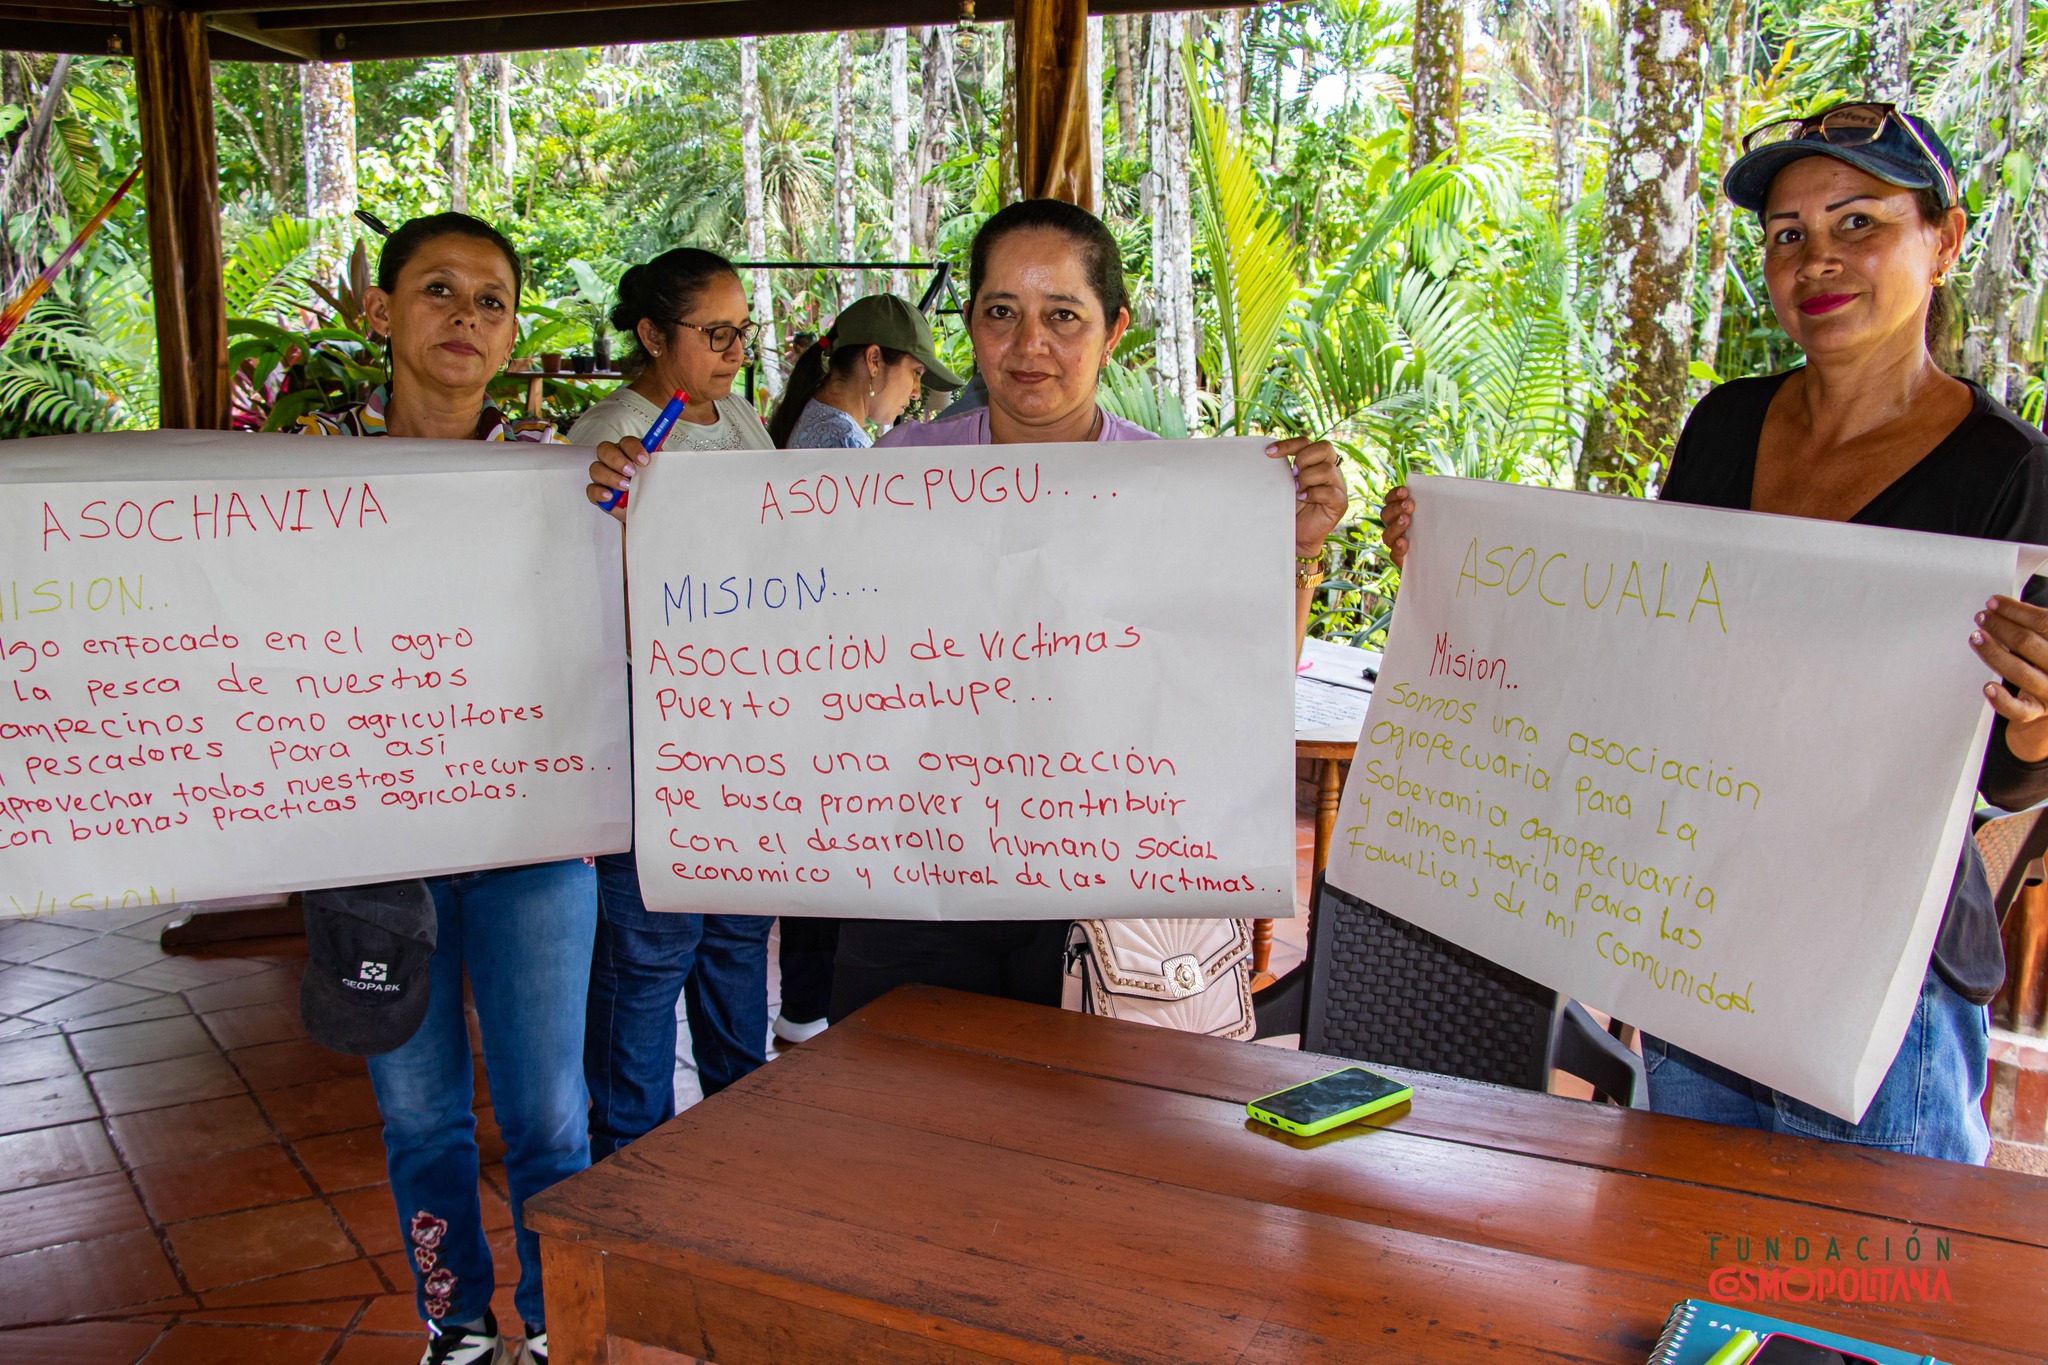 ASOCHAVIVA
MISION..
lgo enfocado en el agro
la pesca de nuestros
ampecinos como agricultores
pescadores para asi
aprovechar todos nuestros rrecursos..
con buenas practicas agricolas.
VISION
ASOVICPUGU....
MISION....
ASOCIACIÓN de victimas
Puerto guadalupe...
Somos una organización
que busca promover y contribuir
con el desarrollo humano social
economico y cultural de las victimas..
ASOCUALA
Mision..
Somos una asociación
agropecuaria para la
Soberania agropecuaria
y alimentaria para las
Familias de mi comunidad.
GEOPARK
FUNDACIÓN
COSMOPOLITANA